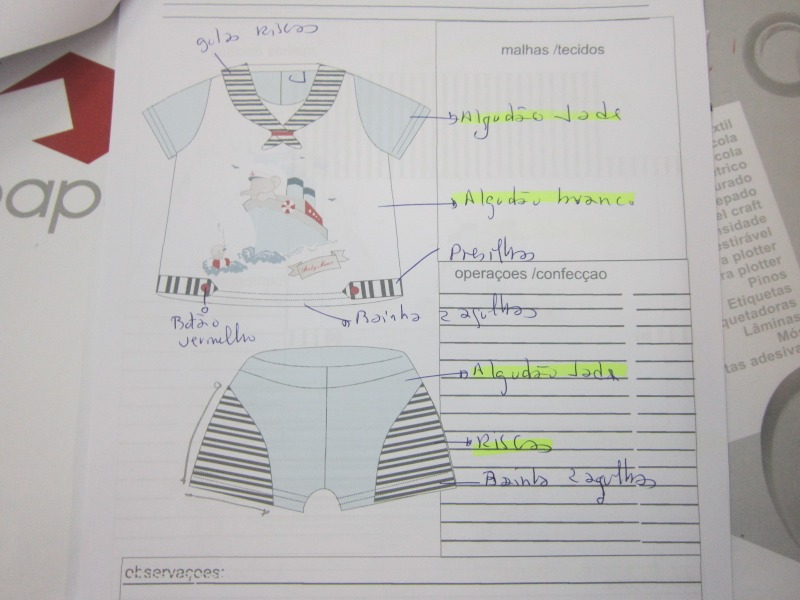 golas Riscas
malhas /tecidos
Algodão Jade
Algodão branco
Presilhas
operaçoes /confecçao
Bainha 2 agulhas
Botão
vermelho
Algodão Jade
Riscas
Bainha 2 agulhas
observaçoes:
oap
xtil
cola
cola
trico
urado
epado
el craft
nsidade
estirável
a plotter
ra plotter
Pinos
Etiquetas
quetadoras
Lâminas
Mó
tas adesiva